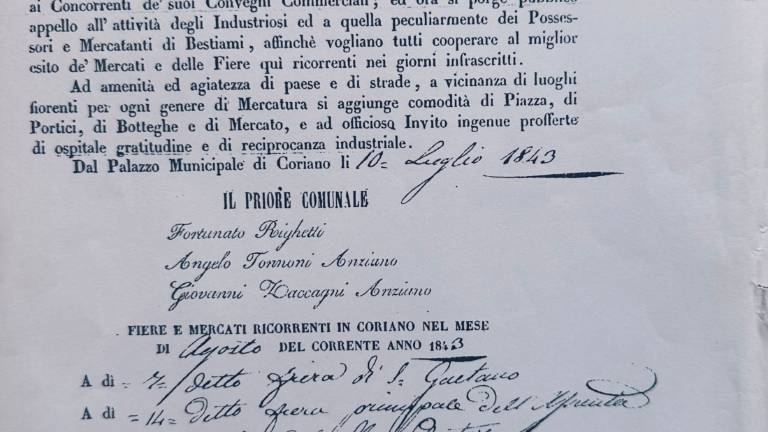 ai Concorrenti de' suoi Convegni Commerciali, ed ora si porge pubblico
appello all' attività degli Industriosi ed a quella peculiarmente dei Posses-
sori e Mercatanti di Bestiami, affinchè vogliano tutti cooperare al miglior
esito de' Mercati e delle Fiere quì ricorrenti nei giorni infrascritti.
Ad amenità ed agiatezza di paese e di strade, a vicinanza di luoghi
fiorenti per ogni genere di Mercatura si aggiunge comodità di Piazza, di
Portici, di Botteghe e di Mercato, e ad officioso Invito ingenue profferte
di ospitale gratitudine e di reciprocanza industriale.
Dal Palazzo Municipale di Coriano li 10= Luglio 1843
IL PRIORE COMUNALE
Fortunato Righetti
Angelo Tonnoni Anziano
Giovanni Zaccagni Anziano
FIERE E MERCATI RICORRENTI IN CORIANO NEL MESE
DI Agosto DEL CORRENTE ANNO 1843
A dì = 7= detto fiera di S. Gaetano
A dì = 14= detto fiera principale dell'